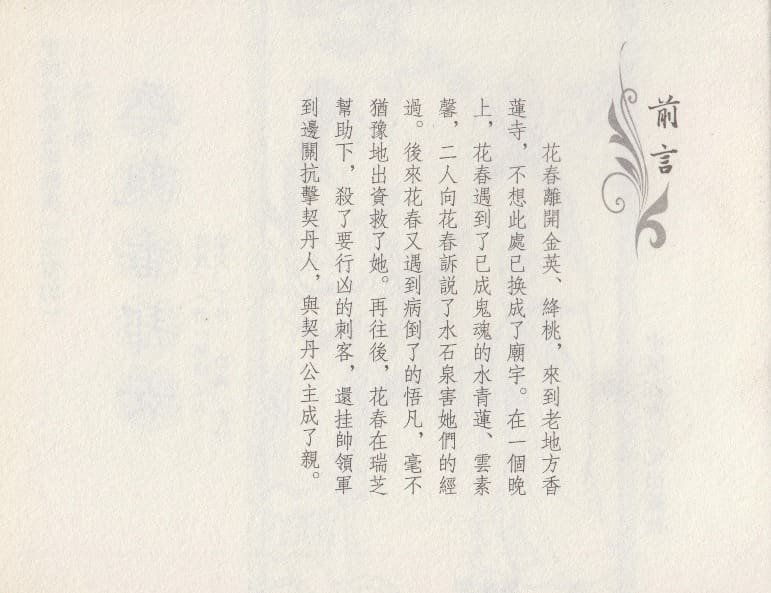 前言
花春離開金英、絳桃，來到老地方香
蓮寺，不想此處已换成了廟宇。在一個晚
上，花春遇到了已成鬼魂的水青蓮、雲素
馨，二人向花春訴説了水石泉害她們的經
過。後來花春又遇到病倒了的悟凡，毫不
猶豫地出資救了她。再往後，花春在瑞芝
幫助下，殺了要行凶的刺客，還挂帥領軍
到邊關抗擊契丹人，與契丹公主成了親。